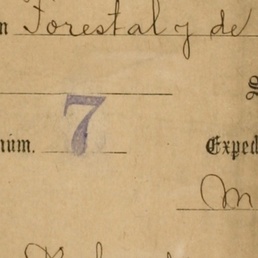 n Forestal y de
7
núm. Exped
M